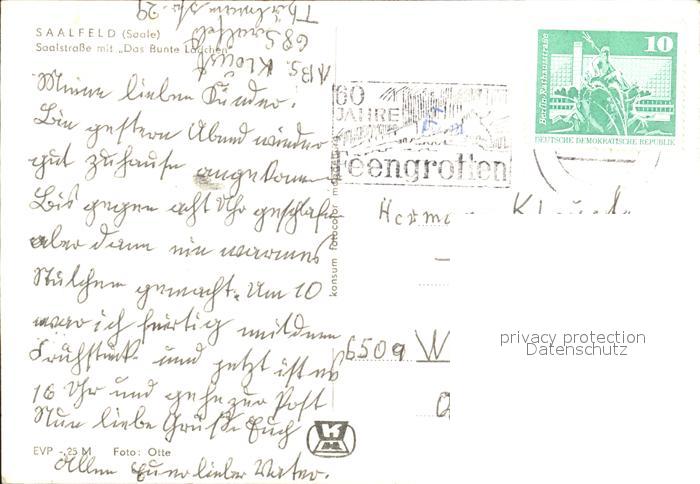 SAALFELD (Saale)
Saalstraße mit „Das Bunte Lädchen"
Abs. Klaus
68 Saalfeld
Str. 29
Meine lieben Kinder!
Bin gestern Abend wieder
gut zuhause angekommen
Bis gegen acht Uhr geschlafen
aber dann ein warmes
Stübchen gemacht. Um 10
war ich fertig mit dem
Frühstück und jetzt ist es
16 Uhr und gehe zur Post
Nun liebe Grüße Euch
Allen Euer lieber Vater.
EVP -,25 M Foto: Otte
konsum fotocolor magdeburg
60
JAHRE
Feengrotten
10
Berlin-Rathausstraße
DEUTSCHE DEMOKRATISCHE REPUBLIK
6509 W
privacy protection
Datenschutz